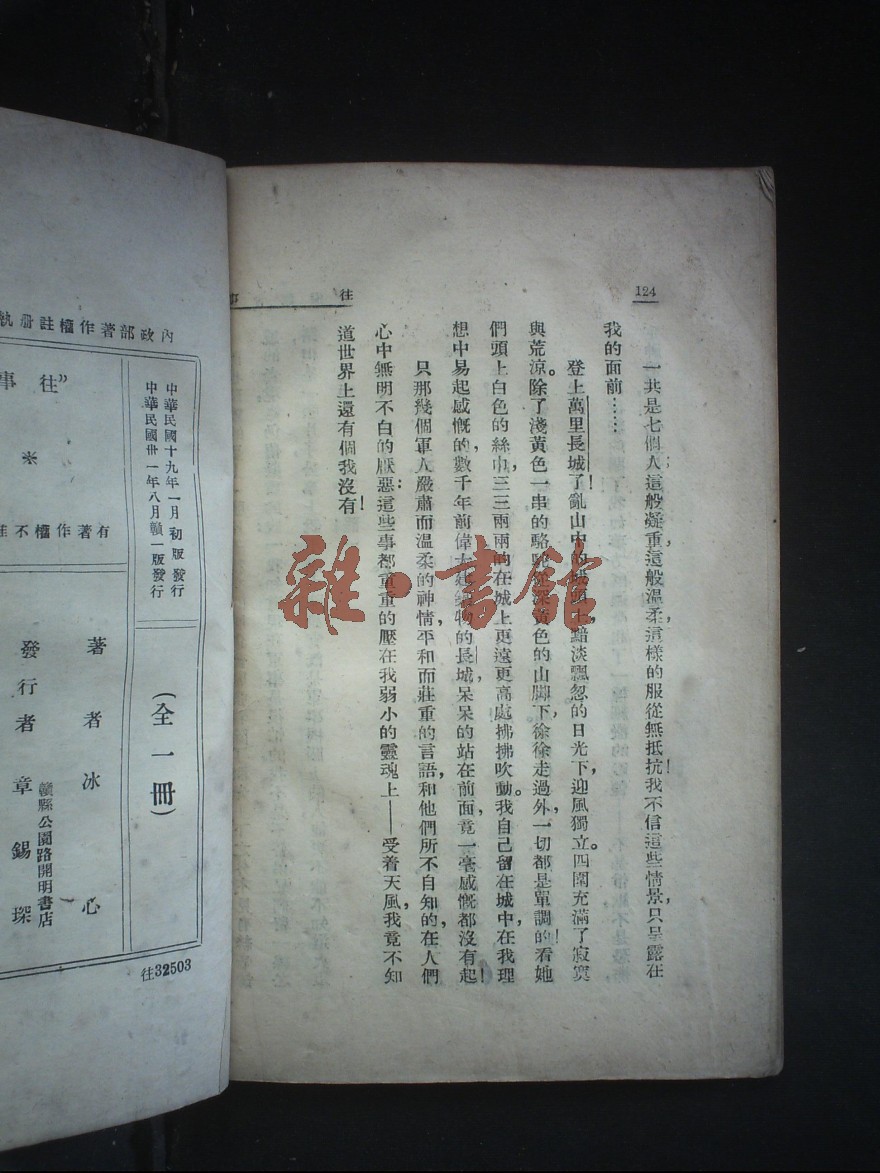 124
一共是七個人,這般凝重,這般溫柔,這樣的服從無抵抗!我不信這些情景,只呈露在
我的面前……
登上萬里長城了!亂山中的城頭上,黯淡飄忽的日光下,迎風獨立。四圍充滿了寂寞
與荒涼。除了淺黃色一串的駱駝,從深黃色的山脚下,徐徐走過外,一切都是單調的!看她
們頭上白色的絲巾,三三兩兩的,在城上更遠更高處拂拂吹動。我自己留在城中,在我理
想中易起感慨的,數千年前偉大建築物的長城,呆呆的站在前面,竟一毫感慨都沒有起!
只那幾個軍人嚴肅而溫柔的神情,平和而莊重的言語,和他們所不自知的,在人們
心中無明不白的厭惡:這些事,都重重的壓在我弱小的靈魂上——受着天風,我竟不知
道世界上還有個我沒有!
往
內政部著作權註册執
中華民國十九年一月初版發行
中華民國卅一年八月贛一版發行
(全一冊)
著者冰心
發行者章錫琛
贛縣公園路開明書店
"往事
*
有著作權不准
往32503
雜·書館